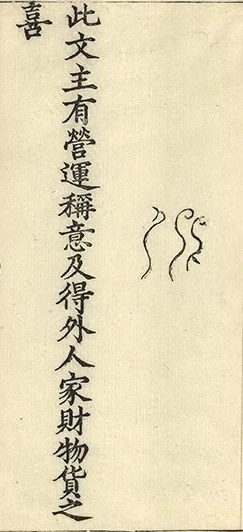 此文主有營運稱意及得外人家財物貨之
喜